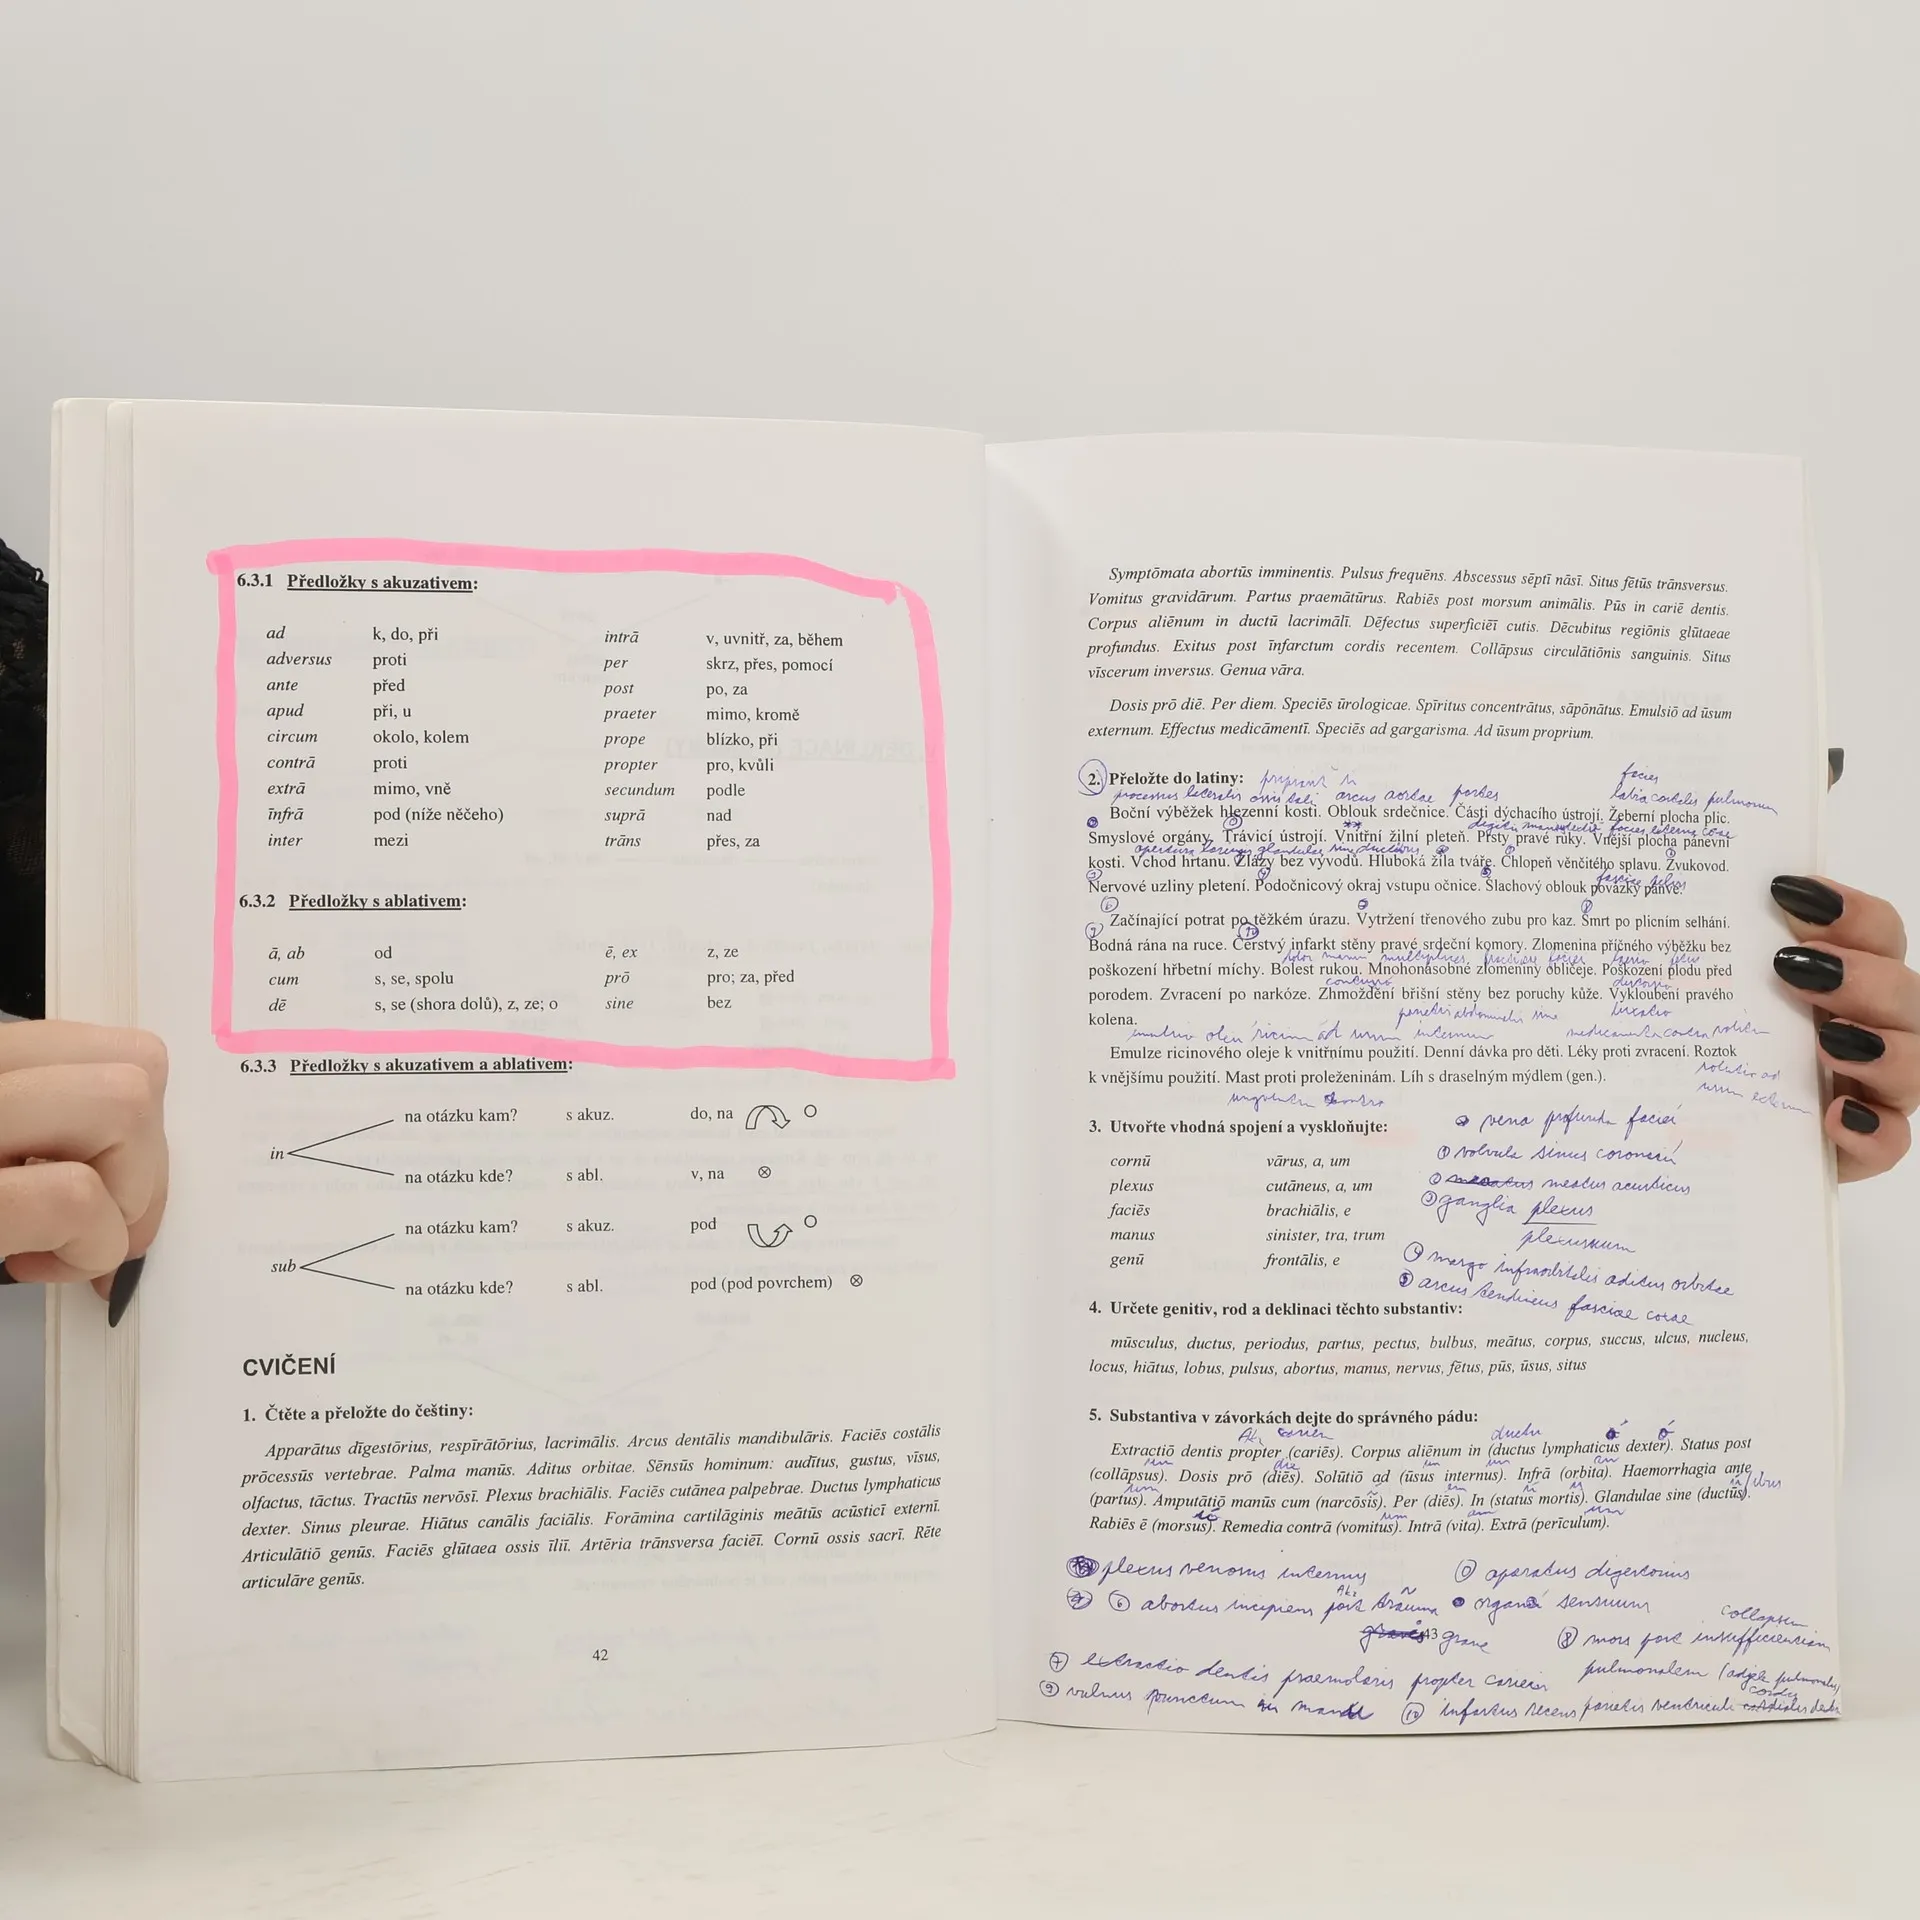 6.3.1 Předložky s akuzativem:
ad k, do, při intrā v, uvnitř, za, během
adversus proti per skrz, přes, pomocí
ante před post po, za
apud při, u praeter mimo, kromě
circum okolo, kolem prope blízko, při
contrā proti propter pro, kvůli
extrā mimo, vně secundum podle
īnfrā pod (níže něčeho) suprā nad
inter mezi trāns přes, za
6.3.2 Předložky s ablativem:
ā, ab od ē, ex z, ze
cum s, se, spolu prō pro; za, před
dē s, se (shora dolů), z, ze; o sine bez
6.3.3 Předložky s akuzativem a ablativem:
na otázku kam? s akuz. do, na
in
na otázku kde? s abl. v, na
na otázku kam? s akuz. pod
sub
na otázku kde? s abl. pod (pod povrchem)
CVIČENÍ
1. Čtěte a přeložte do češtiny:
Apparātus dīgestōrius, respīrātōrius, lacrimālis. Arcus dentālis mandibulāris. Faciēs costālis
prōcessūs vertebrae. Palma manūs. Aditus orbitae. Sēnsūs hominum: audītus, gustus, vīsus,
olfactus, tāctus. Tractūs nervōsī. Plexus brachiālis. Faciēs cutānea palpebrae. Ductus lymphaticus
dexter. Sinus pleurae. Hiātus canālis faciālis. Forāmina cartilāginis meātūs acūsticī externī.
Articulātiō genūs. Faciēs glūtaea ossis īliī. Artēria trānsversa faciēī. Cornū ossis sacrī. Rēte
articulāre genūs.
42
Symptōmata abortūs imminentis. Pulsus frequēns. Abscessus sēptī nāsī. Situs fētūs trānsversus.
Vomitus gravidārum. Partus praemātūrus. Rabiēs post morsum animālis. Pūs in cariē dentis.
Corpus aliēnum in ductū lacrimālī. Dēfectus superficiēī cutis. Dēcubitus regiōnis glūtaeae
profundus. Exitus post īnfarctum cordis recentem. Collāpsus circulātiōnis sanguinis. Situs
vīscerum inversus. Genua vāra.
Dosis prō diē. Per diem. Speciēs ūrologicae. Spīritus concentrātus, sāpōnātus. Emulsiō ad ūsum
externum. Effectus medicāmentī. Speciēs ad gargarisma. Ad ūsum proprium.
2. Přeložte do latiny:
facies
processus lateralis ossis tali arcus aortae partes
Boční výběžek hlezenní kosti. Oblouk srdečnice. Části dýchacího ústrojí. Žeberní plocha plic.
Smyslové orgány. Trávicí ústrojí. Vnitřní žilní pleteň. Prsty pravé ruky. Vnější plocha pánevní
apertura glandulae sine ductibus
kosti. Vchod hrtanu. Žlázy bez vývodů. Hluboká žíla tváře. Chlopeň věnčitého splavu. Zvukovod.
Nervové uzliny pletení. Podočnicový okraj vstupu očnice. Šlachový oblouk povázky pánve.
Začínající potrat po těžkém úrazu. Vytržení třenového zubu pro kaz. Smrt po plicním selhání.
Bodná rána na ruce. Čerstvý infarkt stěny pravé srdeční komory. Zlomenina příčného výběžku bez
poškození hřbetní míchy. Bolest rukou. Mnohonásobné zlomeniny obličeje. Poškození plodu před
porodem. Zvracení po narkóze. Zhmoždění břišní stěny bez poruchy kůže. Vykloubení pravého
kolena.
Emulze ricinového oleje k vnitřnímu použití. Denní dávka pro děti. Léky proti zvracení. Roztok
k vnějšímu použití. Mast proti proleženinám. Líh s draselným mýdlem (gen.).
3. Utvořte vhodná spojení a vyskloňujte:
vena profunda faciei
cornū vārus, a, um
plexus cutāneus, a, um
meatus acusticus
faciēs brachiālis, e
ganglia plexus
manus sinister, tra, trum
plexuum
genū frontālis, e
margo infraorbitalis aditus orbitae
arcus tendineus fasciae
4. Určete genitiv, rod a deklinaci těchto substantiv:
mūsculus, ductus, periodus, partus, pectus, bulbus, meātus, corpus, succus, ulcus, nucleus,
locus, hiātus, lobus, pulsus, abortus, manus, nervus, fētus, pūs, ūsus, situs
5. Substantiva v závorkách dejte do správného pádu:
Extractiō dentis propter (cariēs). Corpus aliēnum in (ductus lymphaticus dexter). Status post
(collāpsus). Dosis prō (diēs). Solūtiō ad (ūsus internus). Infrā (orbita). Haemorrhagia ante
(partus). Amputātiō manūs cum (narcōsis). Per (diēs). In (status mortis). Glandulae sine (ductūs).
Rabiēs ē (morsus). Remedia contrā (vomitus). Intrā (vita). Extrā (perīculum).
plexus venosus internus
aparatus digestorius
6 abortus incipiens post trauma
organa sensuum
43 grave
8 mors post insufficienciam
7 extractio dentis praemolaris propter cariem
pulmonalem
9 vulnus punctum in manu
10 infarktus recens parietis ventriculi